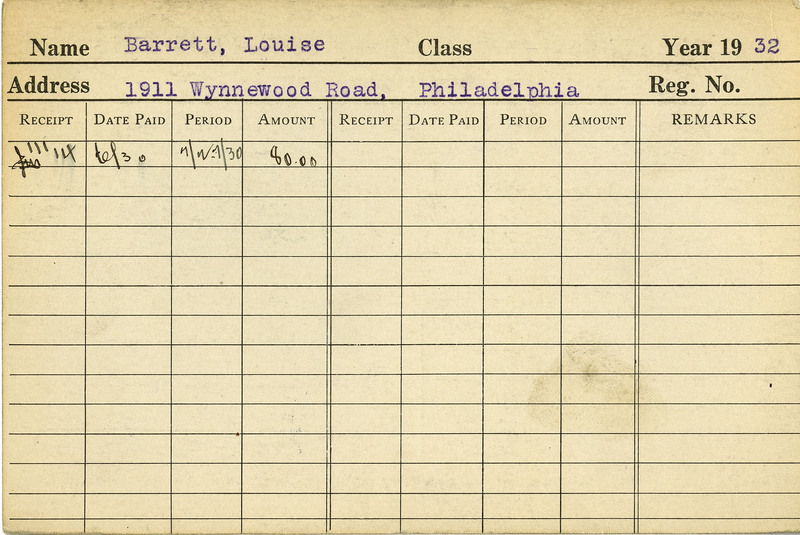 Name Barrett, Louise Class Year 19 32
Address 1911 Wynnewood Road, Philadelphia Reg. No.
RECEIPT DATE PAID PERIOD AMOUNT RECEIPT DATE PAID PERIOD AMOUNT REMARKS
6/30 80.00